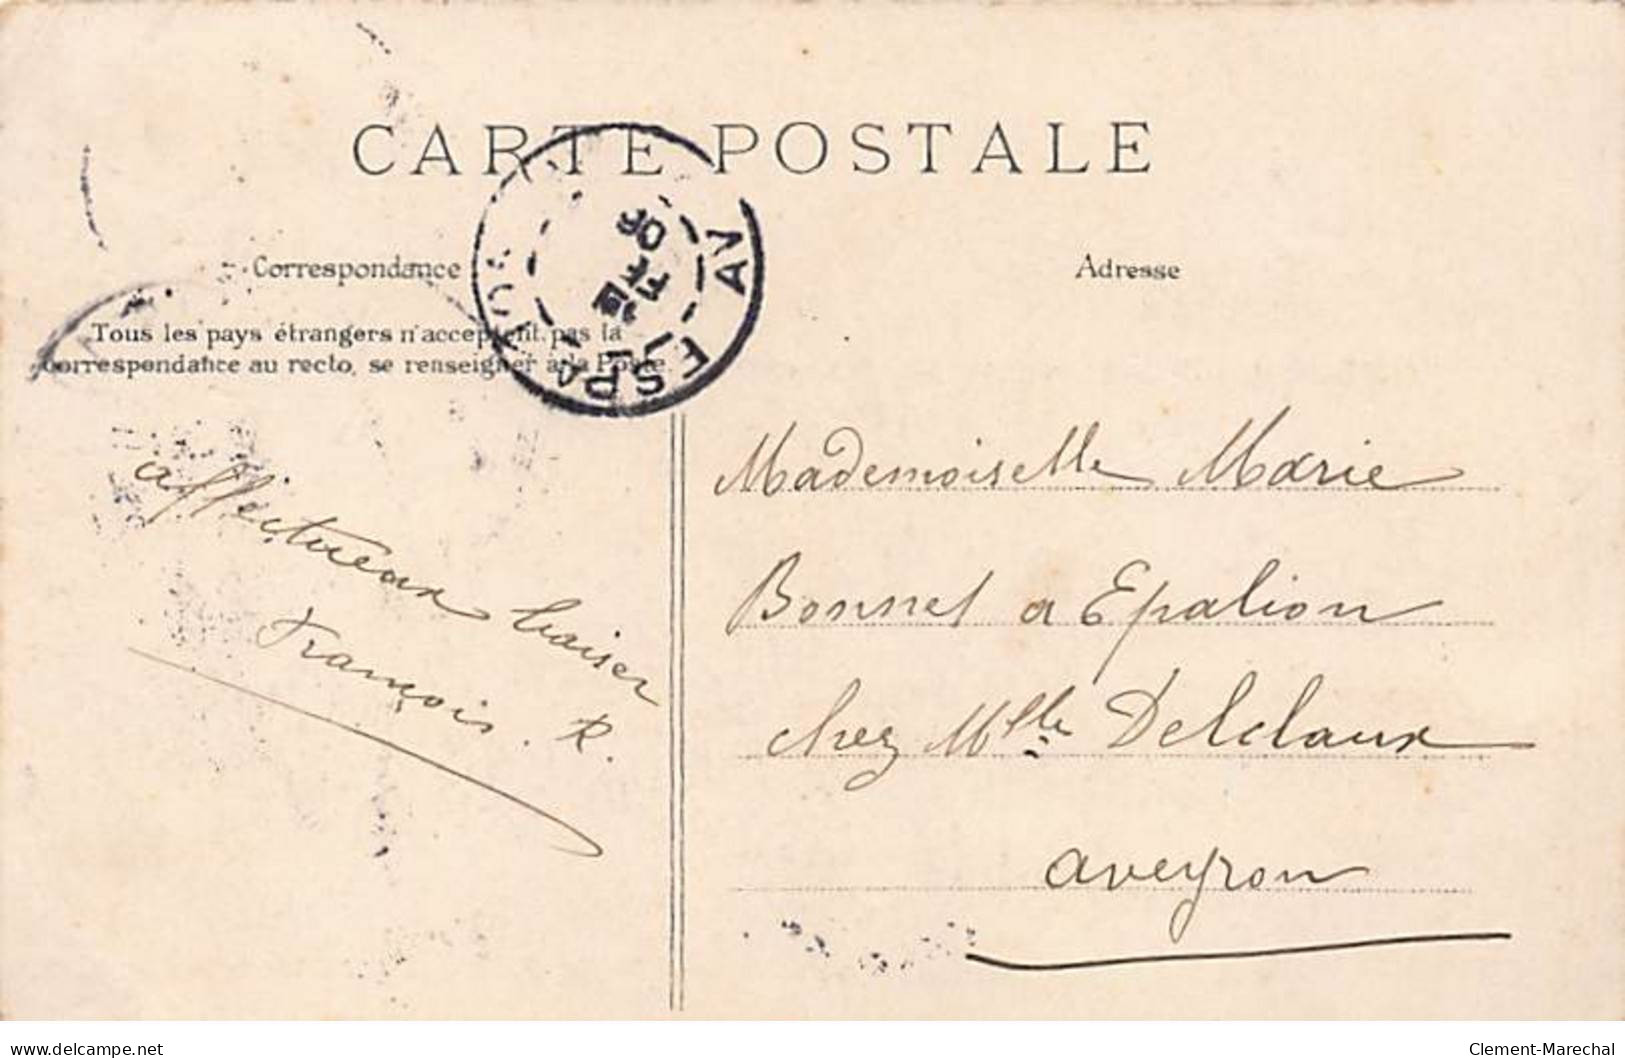 CARTE POSTALE
Correspondance
Adresse
Tous les pays étrangers n'acceptent pas la
correspondance au recto, se renseigner à la Poste.
affectueux baiser
François. R.
Mademoiselle Marie
Bonnet a Espalion
chez Mlle Delclaux
aveyron
delcampe.net
Clement-Marechal